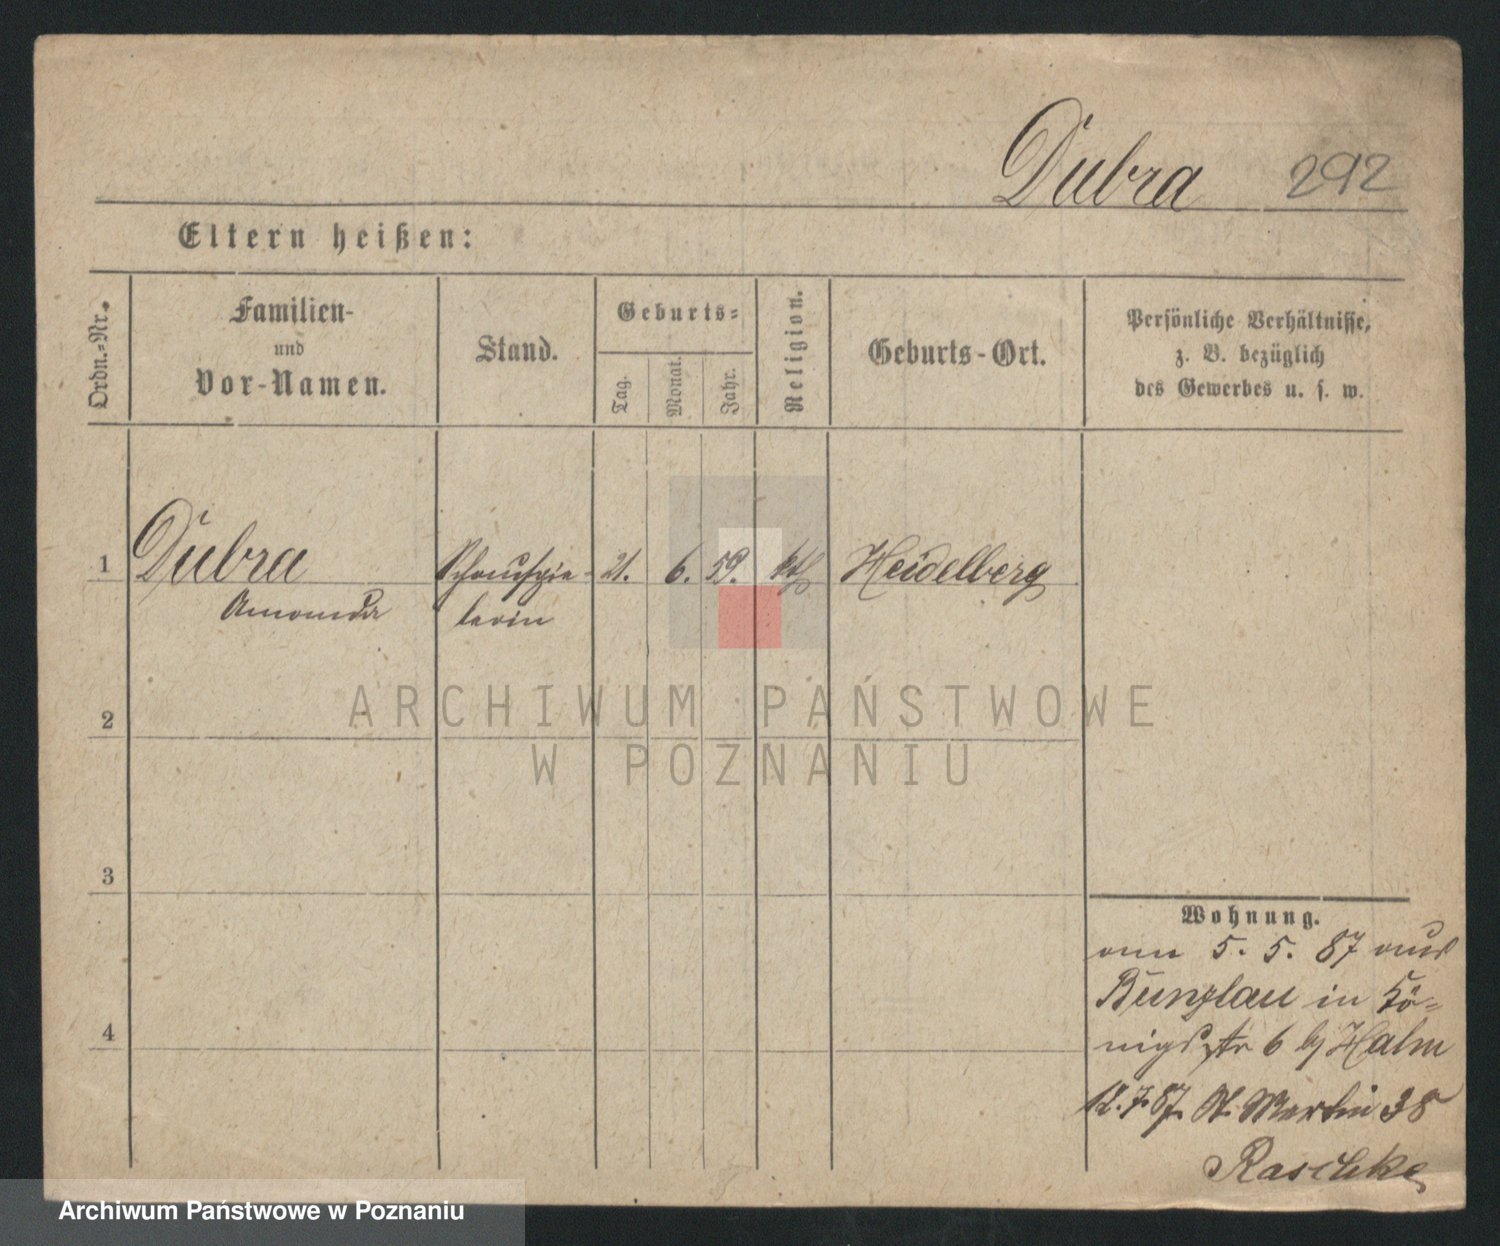 Dubra 292
Eltern heißen:
Ordn.-Nr.
Familien-
und
Vor-Namen.
Stand.
Geburts-
Tag.
Monat.
Jahr.
Religion.
Geburts-Ort.
Persönliche Verhältnisse,
z. B. bezüglich
des Gewerbes u. s. w.
1 Dubra Schauspie- 21. 6. 59. kth Heidelberg
Amanda lerin
2
3
4
Wohnung.
am 5. 5. 87 aus
Bunzlau in Kö-
nigsstr 6 bj Halm
12. 7. 87. St. Martin 38
Raschke
ARCHIWUM PAŃSTWOWE
W POZNANIU
Archiwum Państwowe w Poznaniu